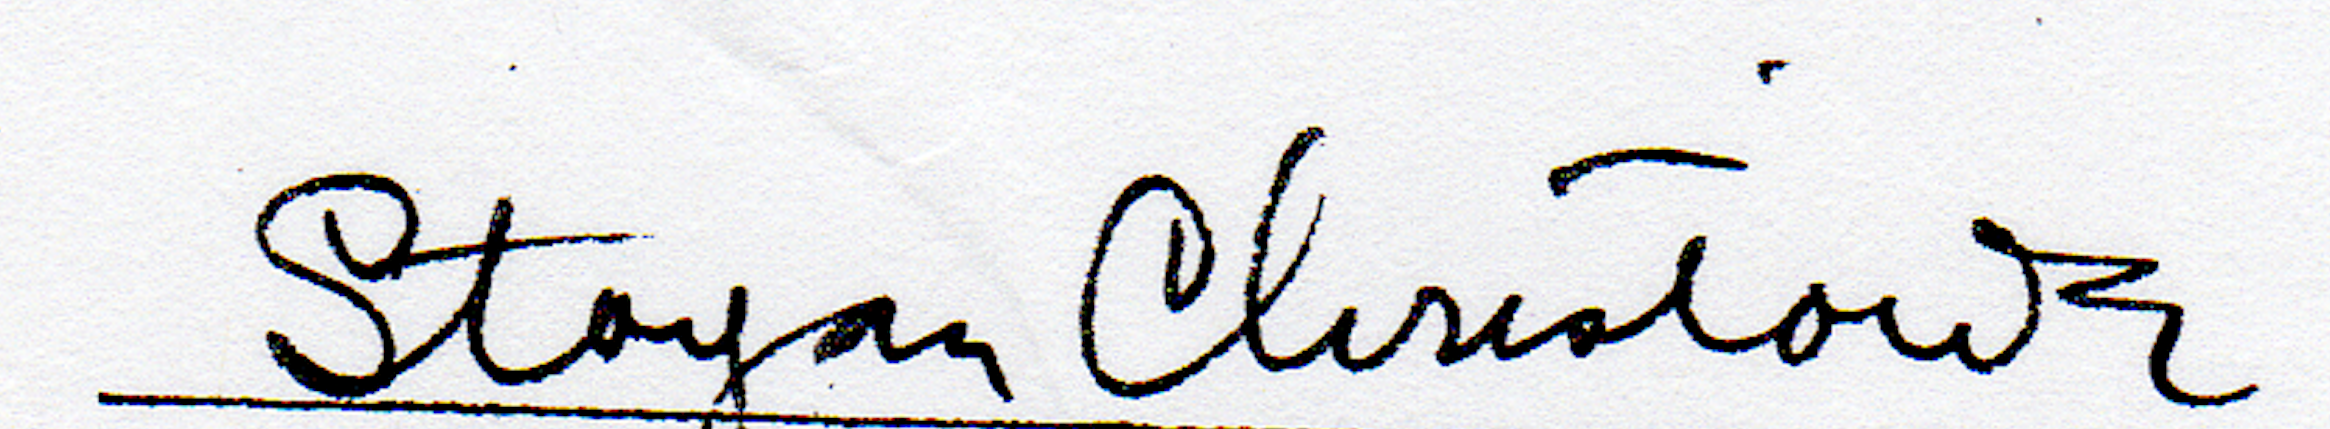 Stoyan Christowe